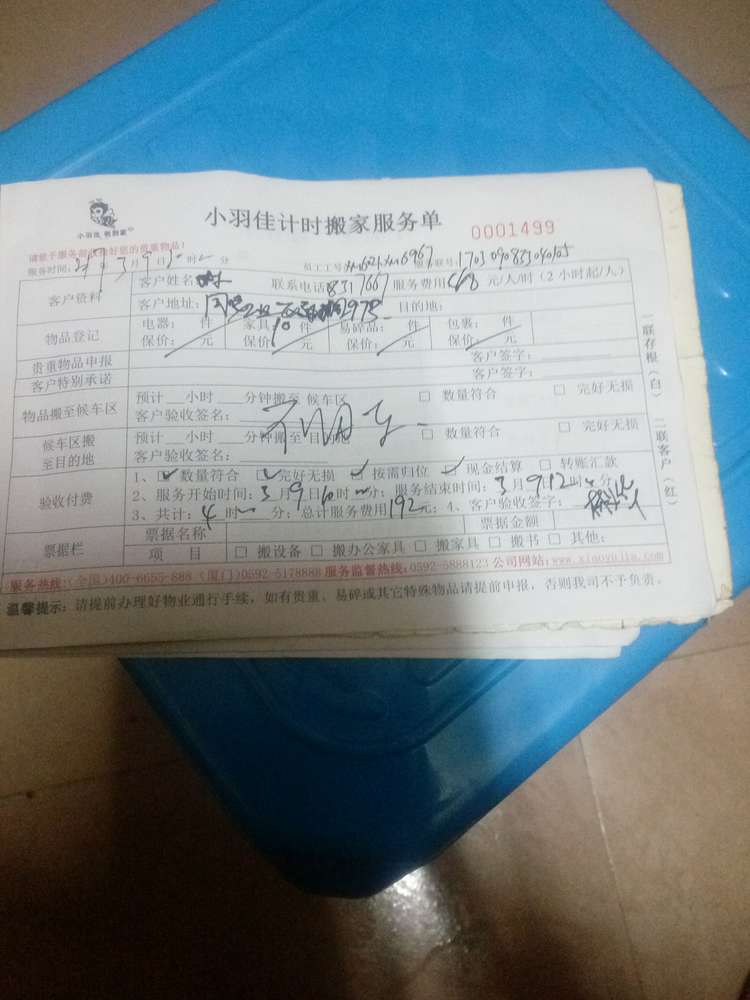 小羽佳计时搬家服务单
0001499
小羽佳
服务时间: 年 3 月 9 日 时 分 员工工号: 1703090833040105
客户资料
客户姓名 联系电话8317667 服务费用48 元/人/时（2小时起/人）
客户地址: 目的地:
物品登记
电器: 件 家具10件 易碎品: 件 包裹: 件
保价: 元 保价: 元 保价: 元 保价: 元
贵重物品申报 客户签字:
客户特别承诺 客户签字:
物品搬至候车区
预计 小时 分钟搬至候车区 □ 数量符合 □ 完好无损
客户验收签名:
不用车
候车区搬至目的地
预计 小时 分钟搬至目的地 □ 数量符合 □ 完好无损
客户验收签名:
验收付费
1、☑ 数量符合 ☑ 完好无损 ☑ 按需归位 ☑ 现金结算 □ 转账汇款
2、服务开始时间: 3月9日10时 分; 服务结束时间: 3月9日12时 分
3、共计: 4时 分; 总计服务费用192元; 4、客户验收签字:
票据栏
票据名称 票据金额
项 目 □ 搬设备 □ 搬办公家具 □ 搬家具 □ 搬书 □ 其他:
服务热线:(全国)400-6655-888 (厦门)0592-5178888 服务监督热线:0592-5888123 公司网站:www.xiaoyujia.com
温馨提示: 请提前办理好物业通行手续，如有贵重、易碎或其它特殊物品请提前申报，否则我司不予负责。
一联存根(白) 二联客户(红)